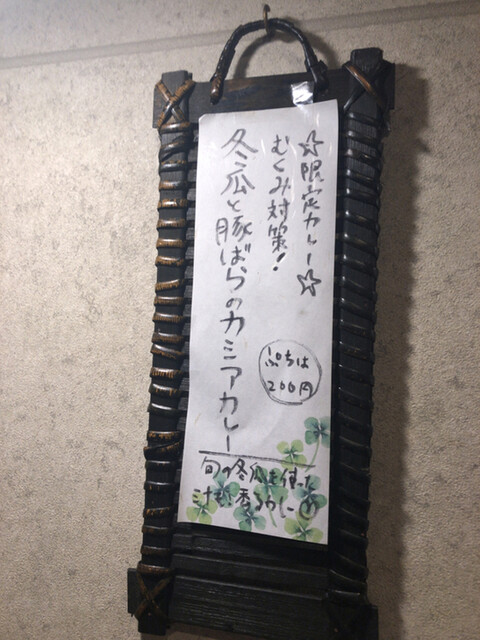 ☆限定カレー☆
むくみ対策!
冬瓜と豚ばらのカシアカレー
ぷちは
200円
旬の冬瓜を使った
香るカレー